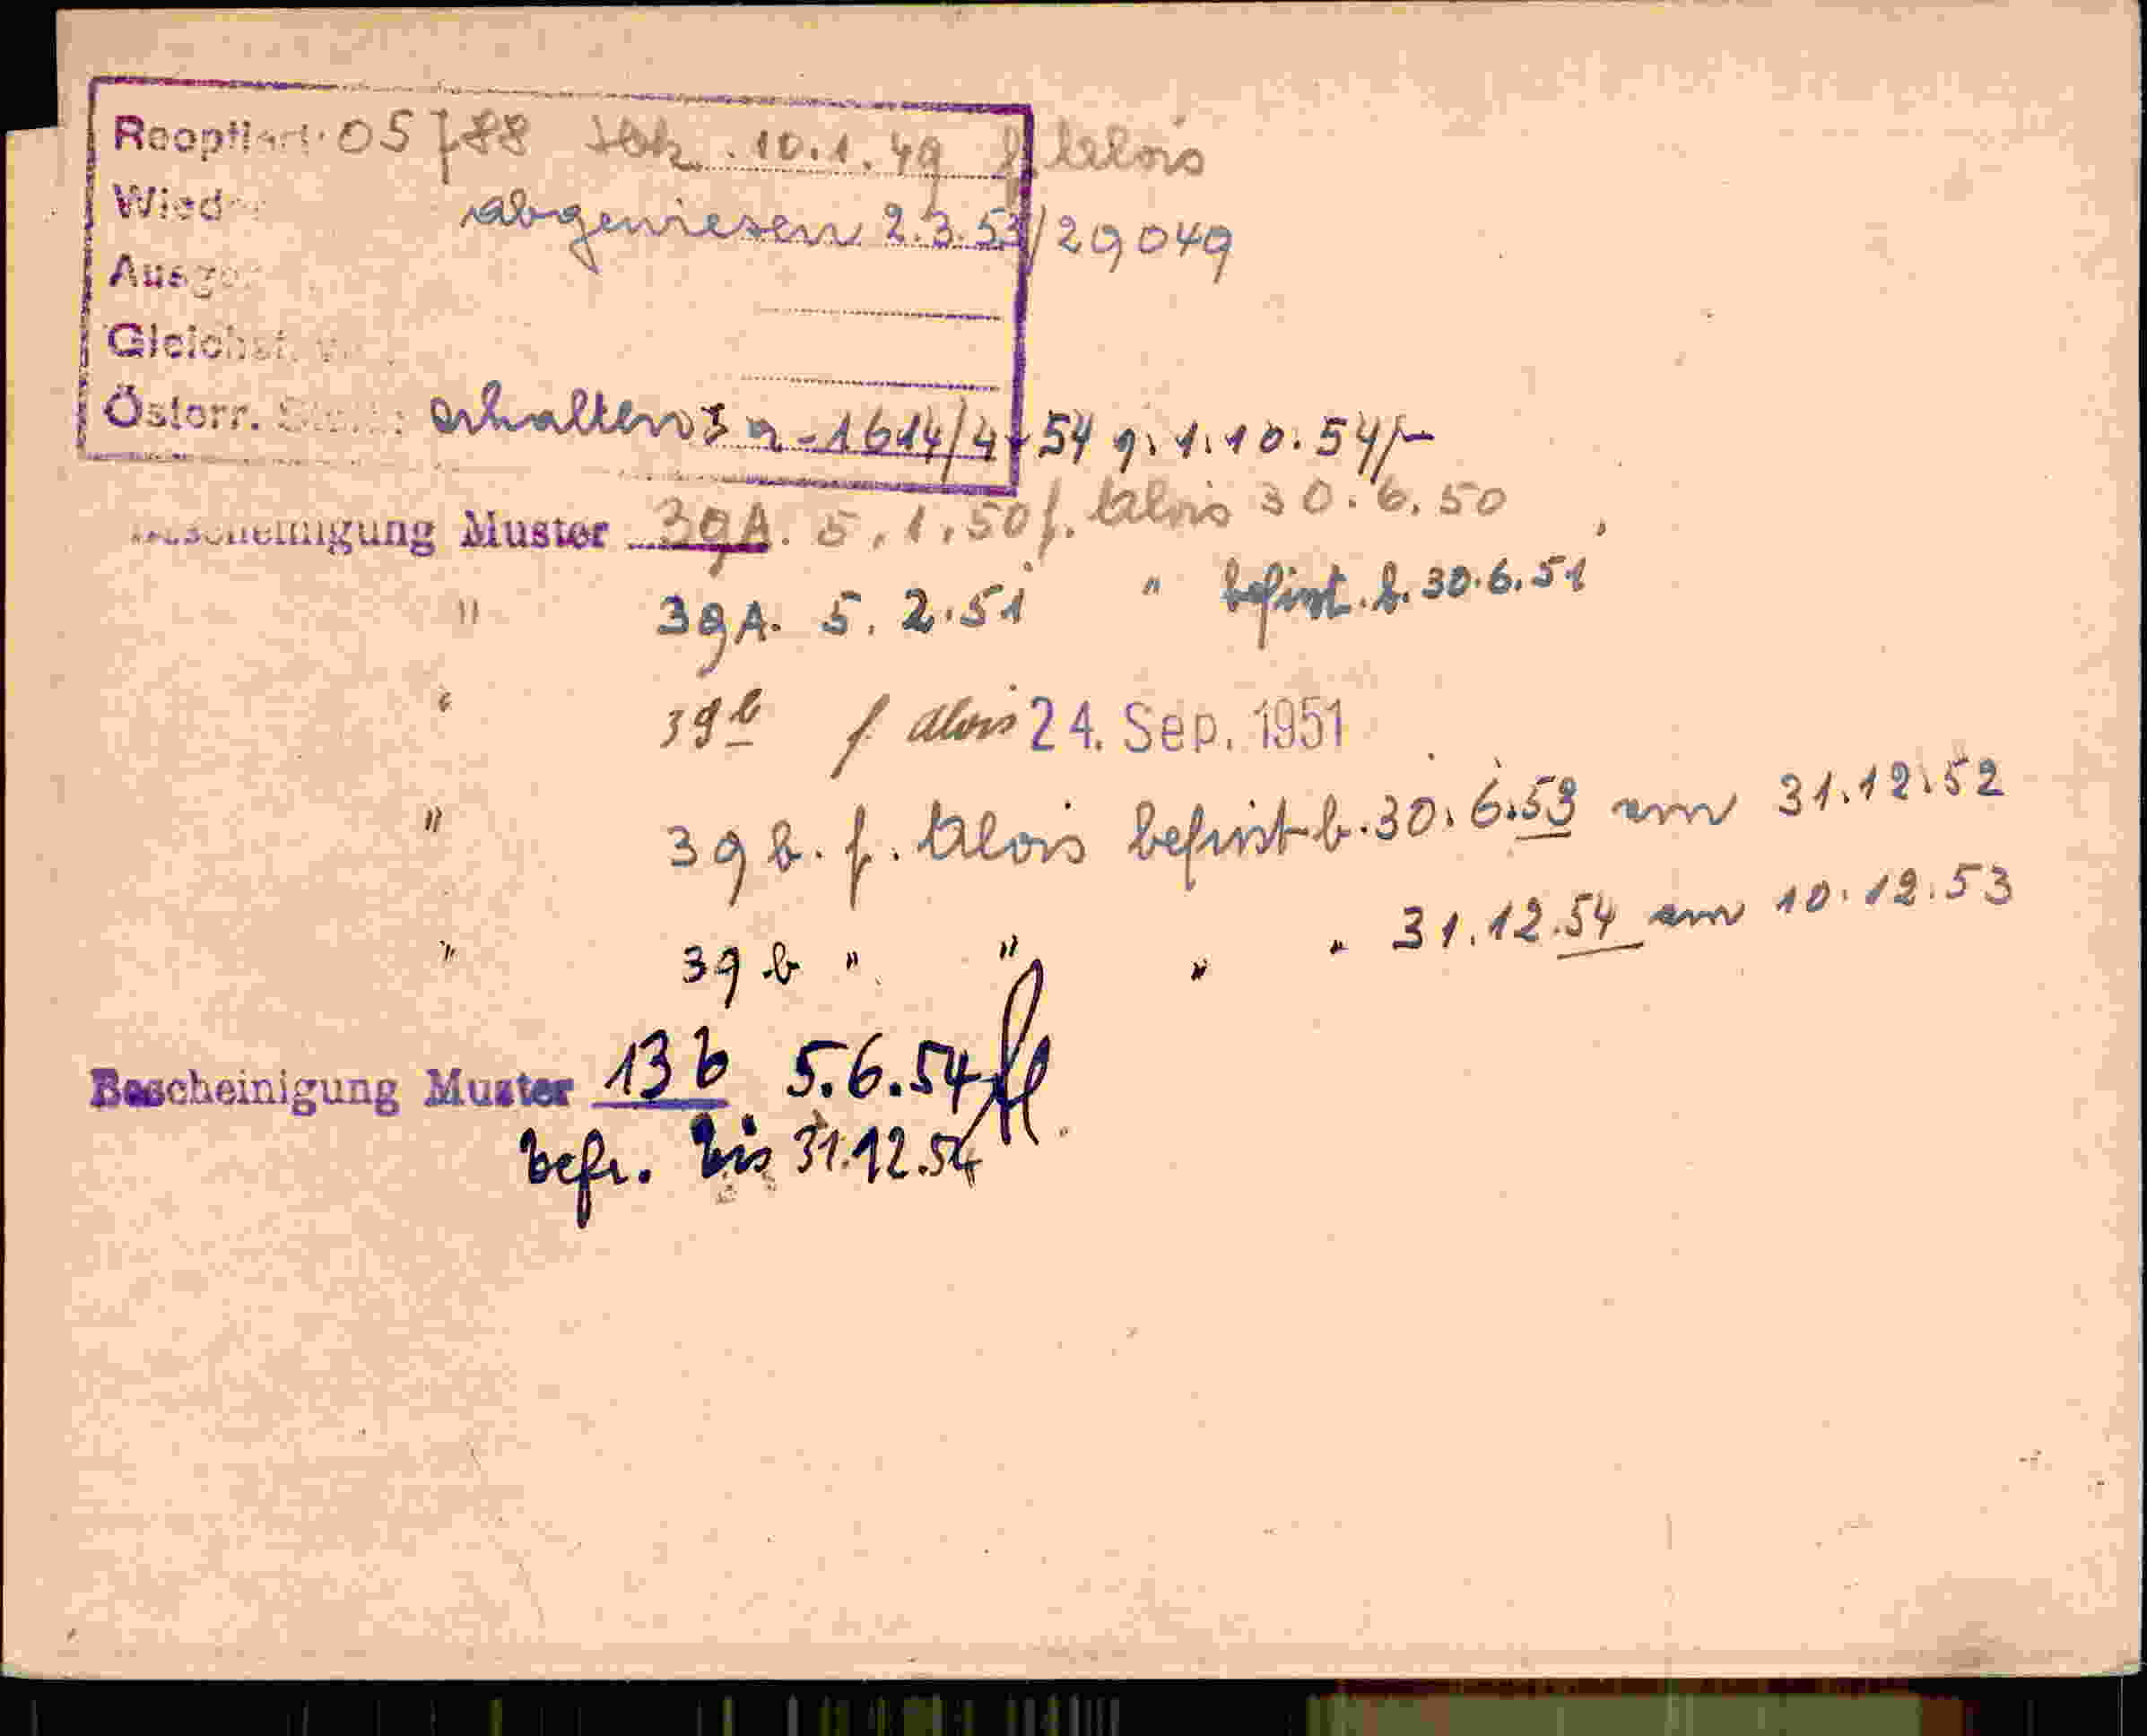 Reoptiert: 05788 10.1.49 f. Alois
Wied abgewiesen 2.3.53/29049
Ausge
Gleichst.
Österr. erhalten 3a-1614/4-54 g. 1.10.54
Bescheinigung Muster 39A. 5.1.50 f. Alois 30.6.50
" 39A. 5.2.51 " befrist. b. 30.6.51
" 39b f Alois 24. Sep. 1951
" 39 b. f. Alois befrist b. 30.6.53 am 31.12.52
" 39 b " " " " 31.12.54 am 10.12.53
Bescheinigung Muster 13b 5.6.54
befr. bis 31.12.54